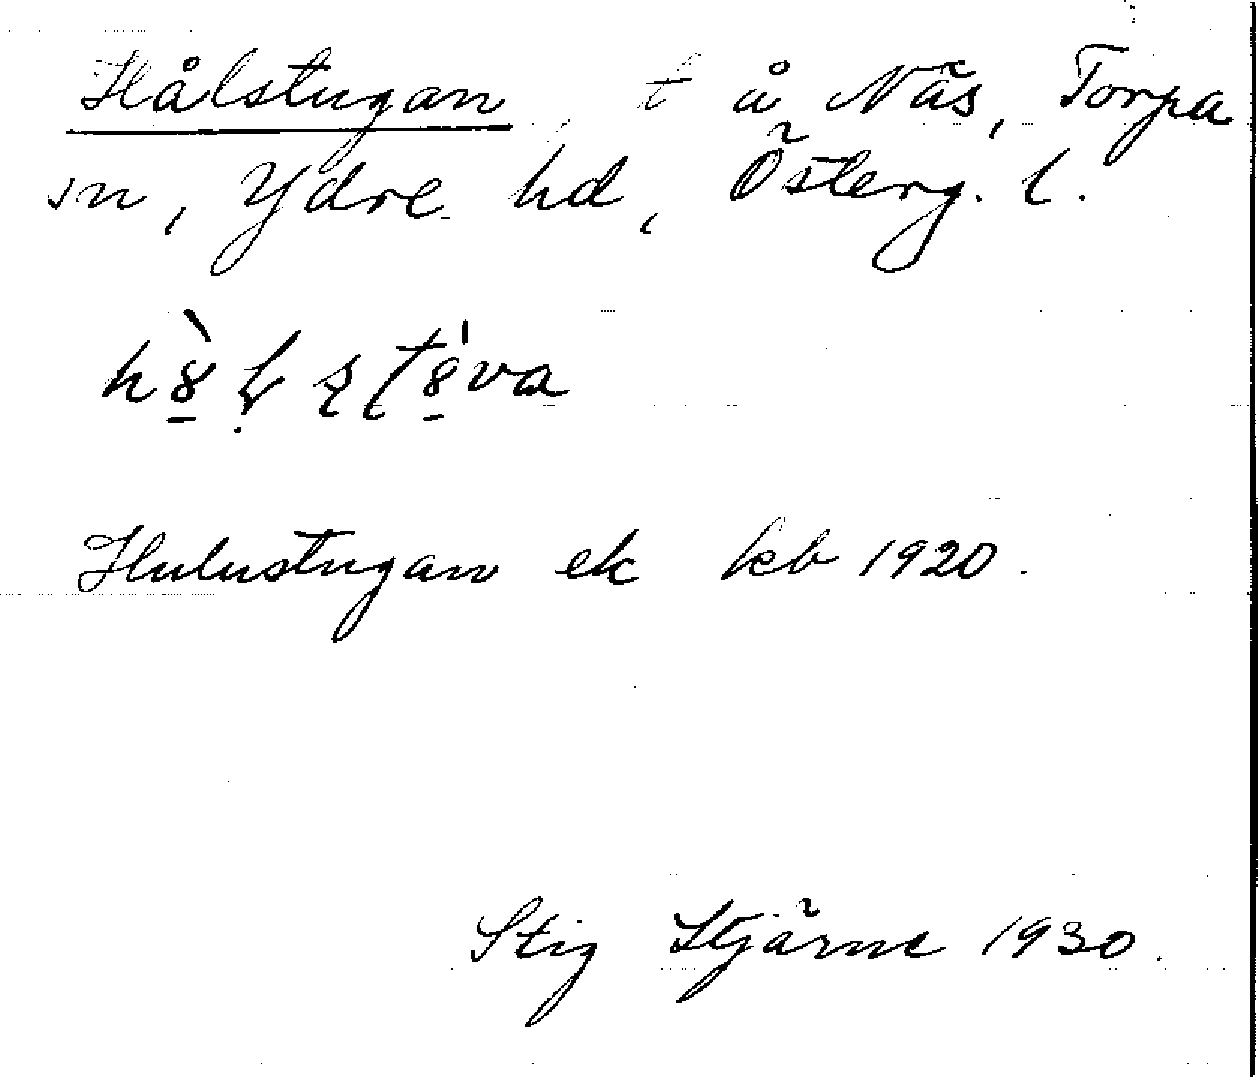 Hålstugan t å Näs, Torpa
sn, Ydre hd, Österg. l.
Hulustugan ek kb 1920.
Stig Stjärne 1930.